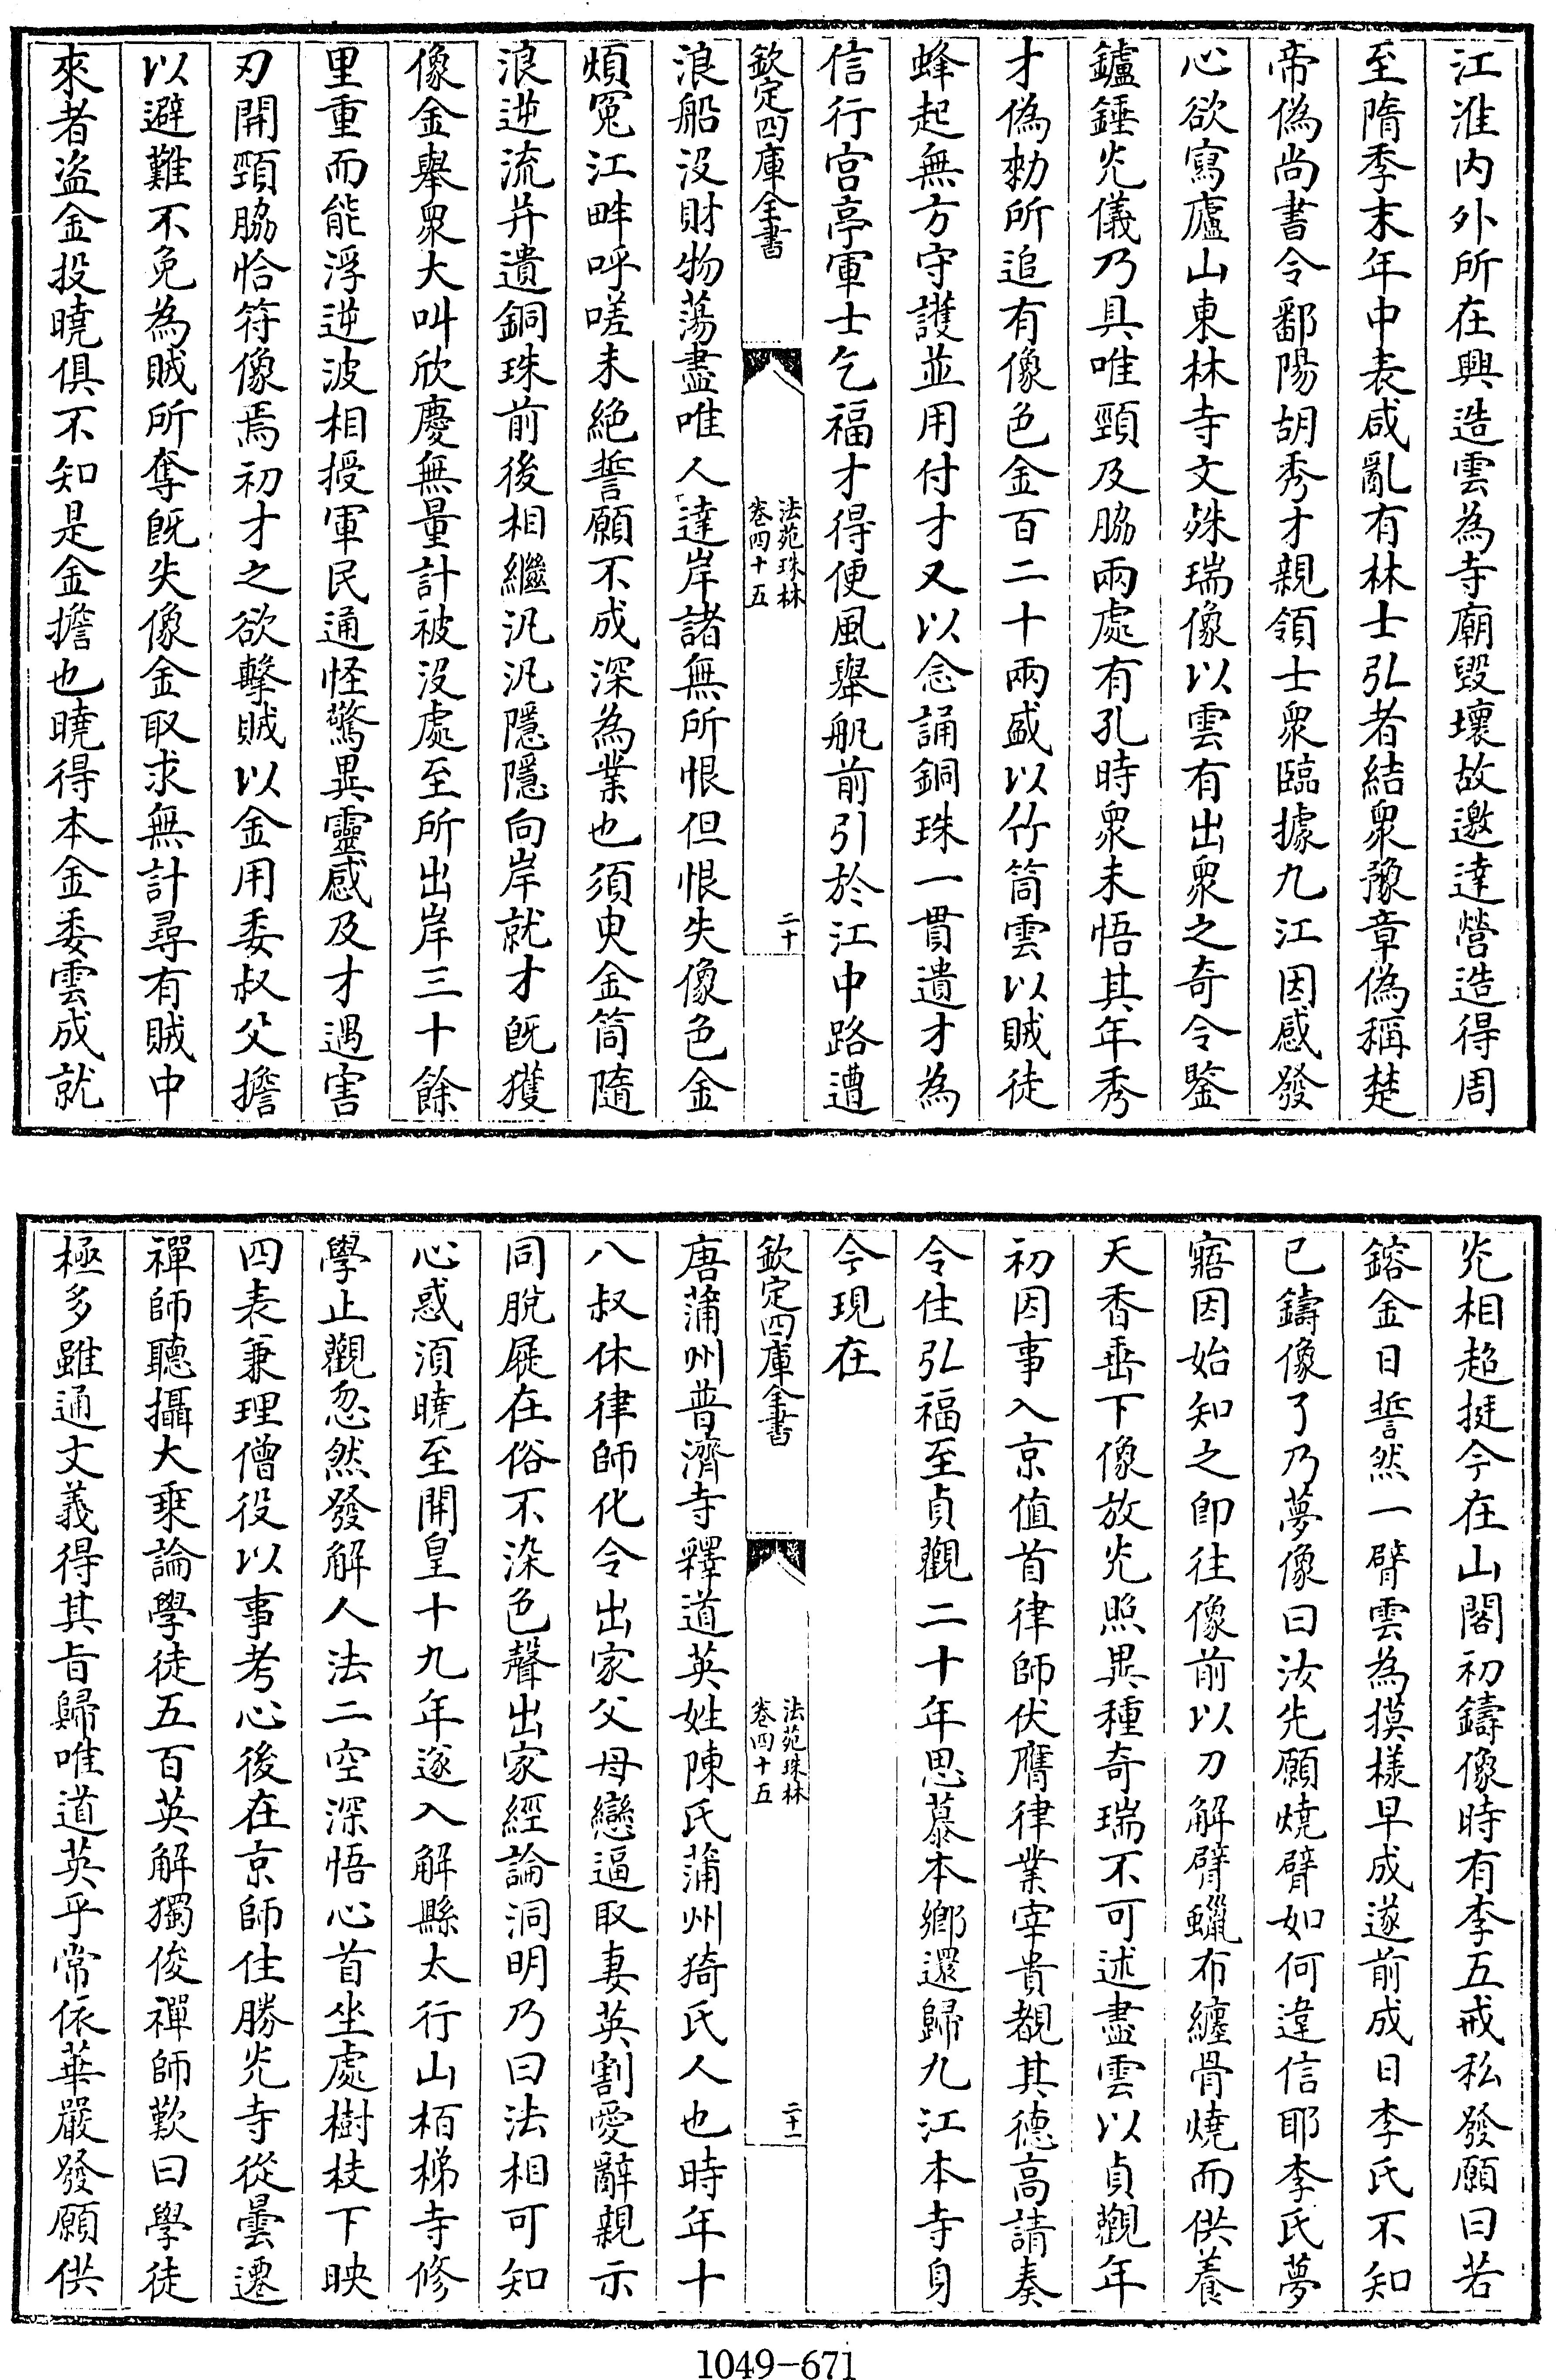 江淮内外所在興造雲為寺廟毀壞故邀達營造得周
至隋季末年中表咸亂有林士弘者結衆豫章偽稱楚
帝偽尚書令鄱陽胡秀才親領士衆臨據九江因感發
心欲寫廬山東林寺文殊瑞像以雲有出衆之奇令鑒
鑪錘光儀乃具唯頸及脇兩處有孔時衆未悟其年秀
才偽勅所追有像色金百二十兩盛以竹筒雲以賊徒
蜂起無方守護並用付才又以念誦銅珠一貫遺才為
信行宮亭軍士乞福才得便風舉帆前引於江中路遭
欽定四庫全書
法苑珠林
卷四十五
二十
浪船没財物蕩盡唯人達岸諸無所恨但恨失像色金
煩冤江畔呼嗟未絶誓願不成深為業也須臾金筒隨
浪逆流并遺銅珠前後相繼汎汎隱隱向岸就才旣獲
像金舉衆大叫欣慶無量計被没處至所出岸三十餘
里重而能浮逆波相授軍民通怪驚異靈感及才遇害
刃開頸脇恰符像焉初才之欲擊賊以金用委叔父擔
以避難不免為賊所奪旣失像金取求無計尋有賊中
來者盗金投曉俱不知是金擔也曉得本金委雲成就
光相超挺今在山閣初鑄像時有李五戒私發願曰若
鎔金日誓然一臂雲為摸樣早成遂前成日李氏不知
已鑄像了乃夢像曰汝先願燒臂如何違信耶李氏夢
寤因始知之即往像前以刀解臂蠟布纏骨燒而供養
天香垂下像放光照異種奇瑞不可述盡雲以貞觀年
初因事入京值首律師伏膺律業宰貴覩其德高請奏
令住弘福至貞觀二十年思慕本鄉還歸九江本寺身
今現在
欽定四庫全書
法苑珠林
卷四十五
二十一
唐蒲州普濟寺釋道英姓陳氏蒲州猗氏人也時年十
八叔休律師化令出家父母戀逼取妻英割愛辭親示
同脫屣在俗不染色聲出家經論洞明乃曰法相可知
心惑須曉至開皇十九年遂入解縣太行山栢梯寺修
學止觀忽然發解人法二空深悟心首坐處樹枝下映
四表兼理僧役以事考心後在京師住勝光寺從曇遷
禪師聽攝大乘論學徒五百英解獨俊禪師歎曰學徒
極多雖通文義得其旨歸唯道英乎常依華嚴發願供
1049-671